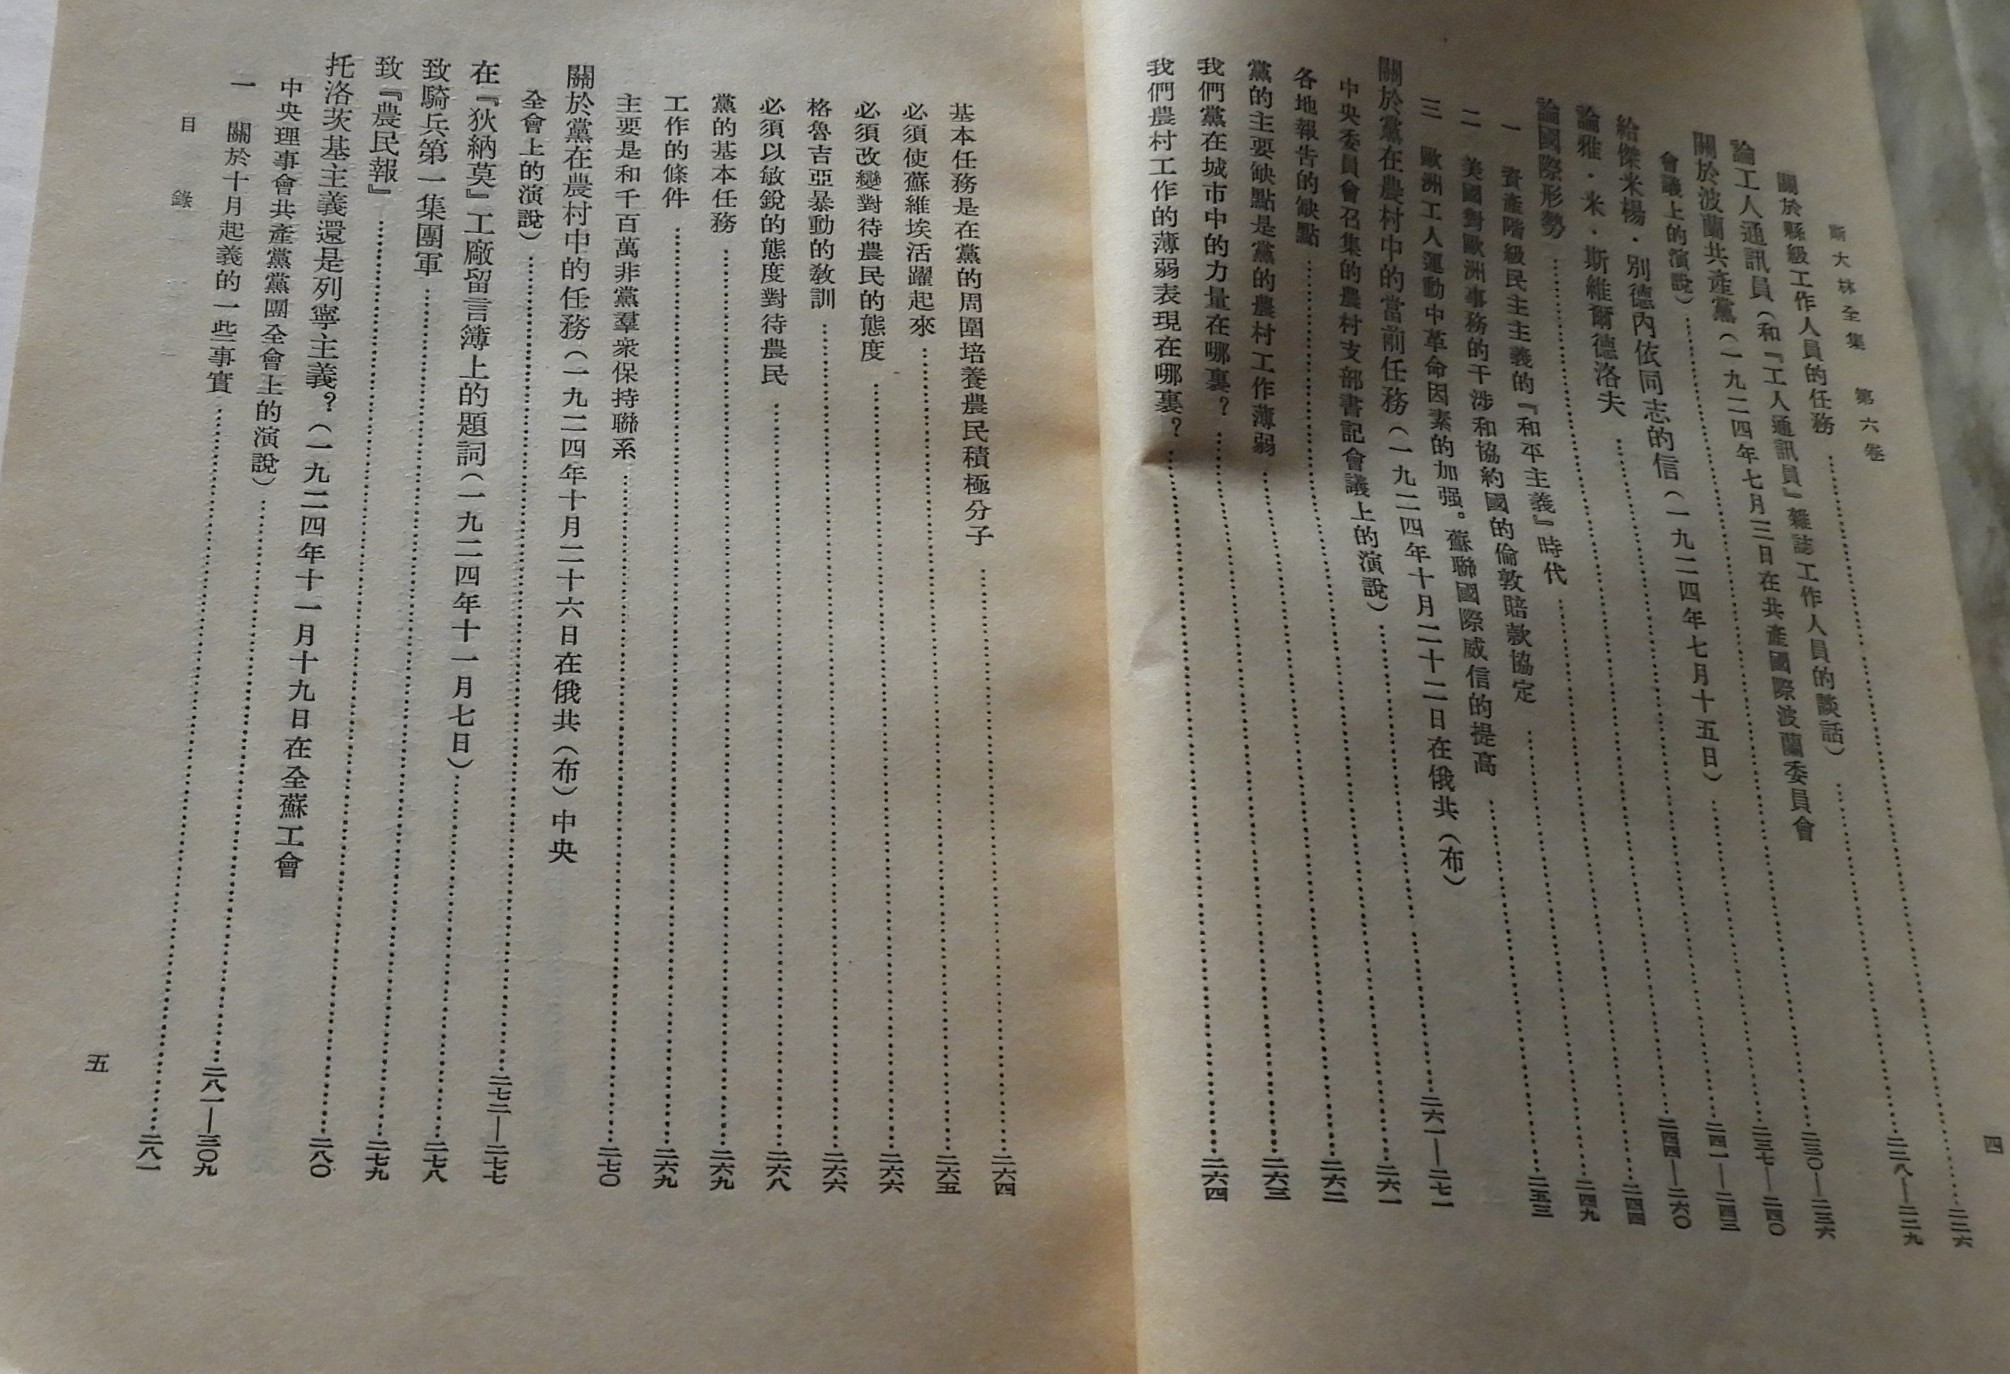 斯大林全集　第六卷
四
關於縣級工作人員的任務……二二六
論工人通訊員（和『工人通訊員』雜誌工作人員的談話）……二二八—二二九
關於波蘭共產黨（一九二四年七月三日在共產國際波蘭委員會
會議上的演說）……二三〇—二三六
給傑米楊·別德內依同志的信（一九二四年七月十五日）……二三七—二四〇
論雅·米·斯維爾德洛夫……二四一—二四三
論國際形勢……二四四—二六〇
一　資產階級民主主義的『和平主義』時代……二四四
二　美國對歐洲事務的干涉和協約國的倫敦賠款協定……二四九
三　歐洲工人運動中革命因素的加强。蘇聯國際威信的提高……二五三
關於黨在農村中的當前任務（一九二四年十月二十二日在俄共（布）
中央委員會召集的農村支部書記會議上的演說）……二六一—二七一
各地報告的缺點……二六一
黨的主要缺點是黨的農村工作薄弱……二六二
我們黨在城市中的力量在哪裏？……二六三
我們農村工作的薄弱表現在哪裏？……二六四
基本任務是在黨的周圍培養農民積極分子……二六四
必須使蘇維埃活躍起來……二六五
必須改變對待農民的態度……二六六
格魯吉亞暴動的敎訓……二六六
必須以敏銳的態度對待農民……二六八
黨的基本任務……二六九
工作的條件……二六九
主要是和千百萬非黨羣衆保持聯系……二七〇
關於黨在農村中的任務（一九二四年十月二十六日在俄共（布）中央
全會上的演說）……二七二—二七七
在『狄納莫』工廠留言簿上的題詞（一九二四年十一月七日）……二七八
致騎兵第一集團軍……二七九
致『農民報』……二八〇
托洛茨基主義還是列寧主義？（一九二四年十一月十九日在全蘇工會
中央理事會共產黨黨團全會上的演說）……二八一—三〇九
一　關於十月起義的一些事實……二八一
目　錄
五